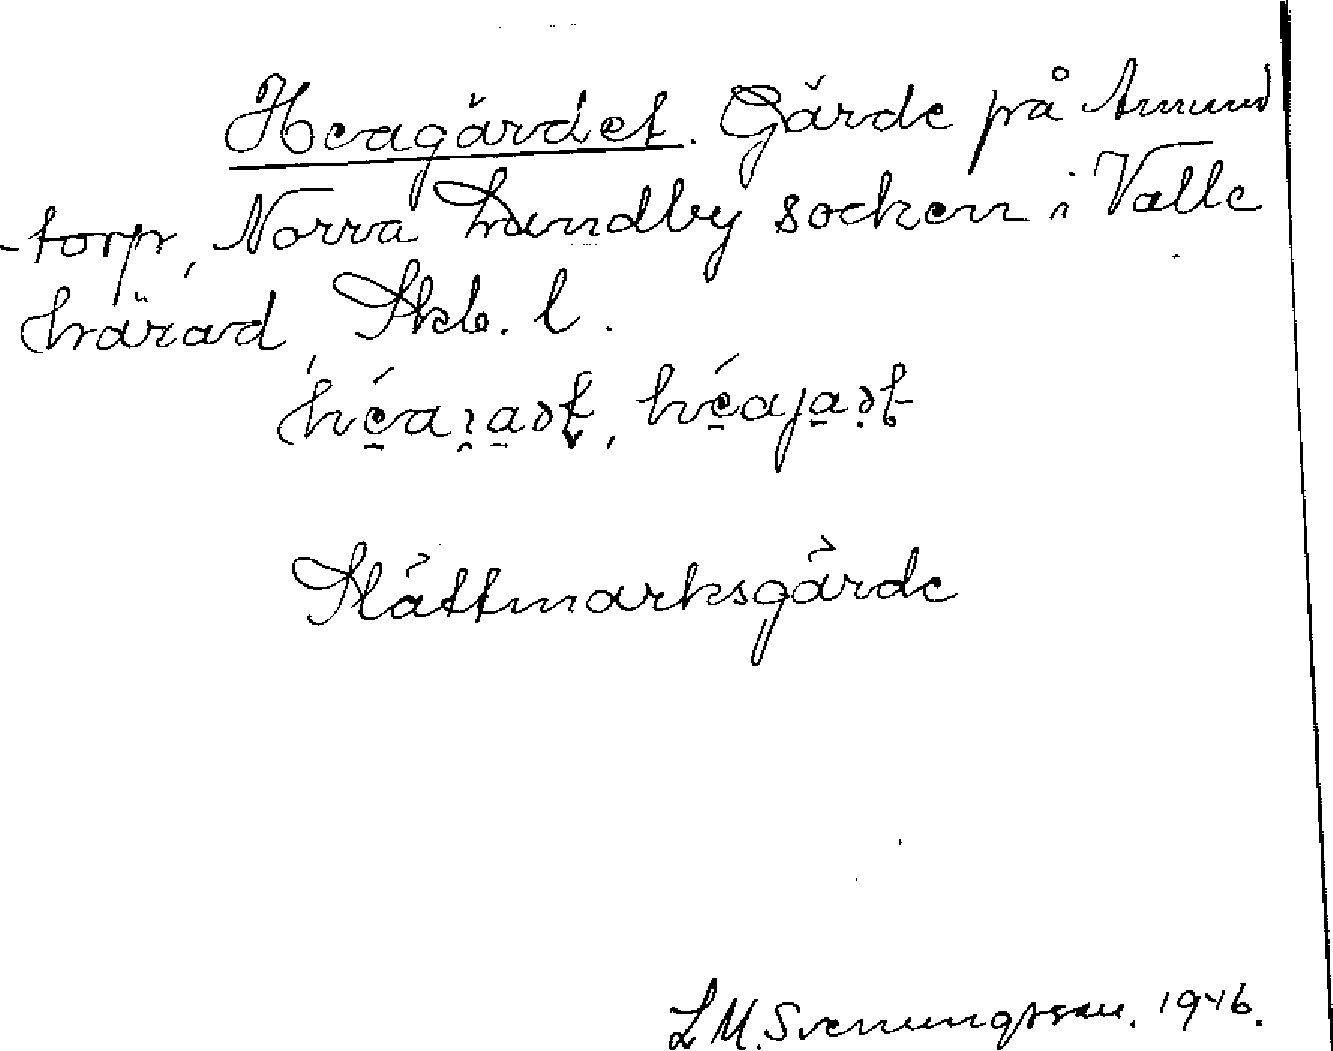 Heagärdet. Gärde på Amund
-torp, Norra Lundby socken i Valle
härad, Skb. l.
Slåttmarksgärde
L M. Svenungsson. 1946.